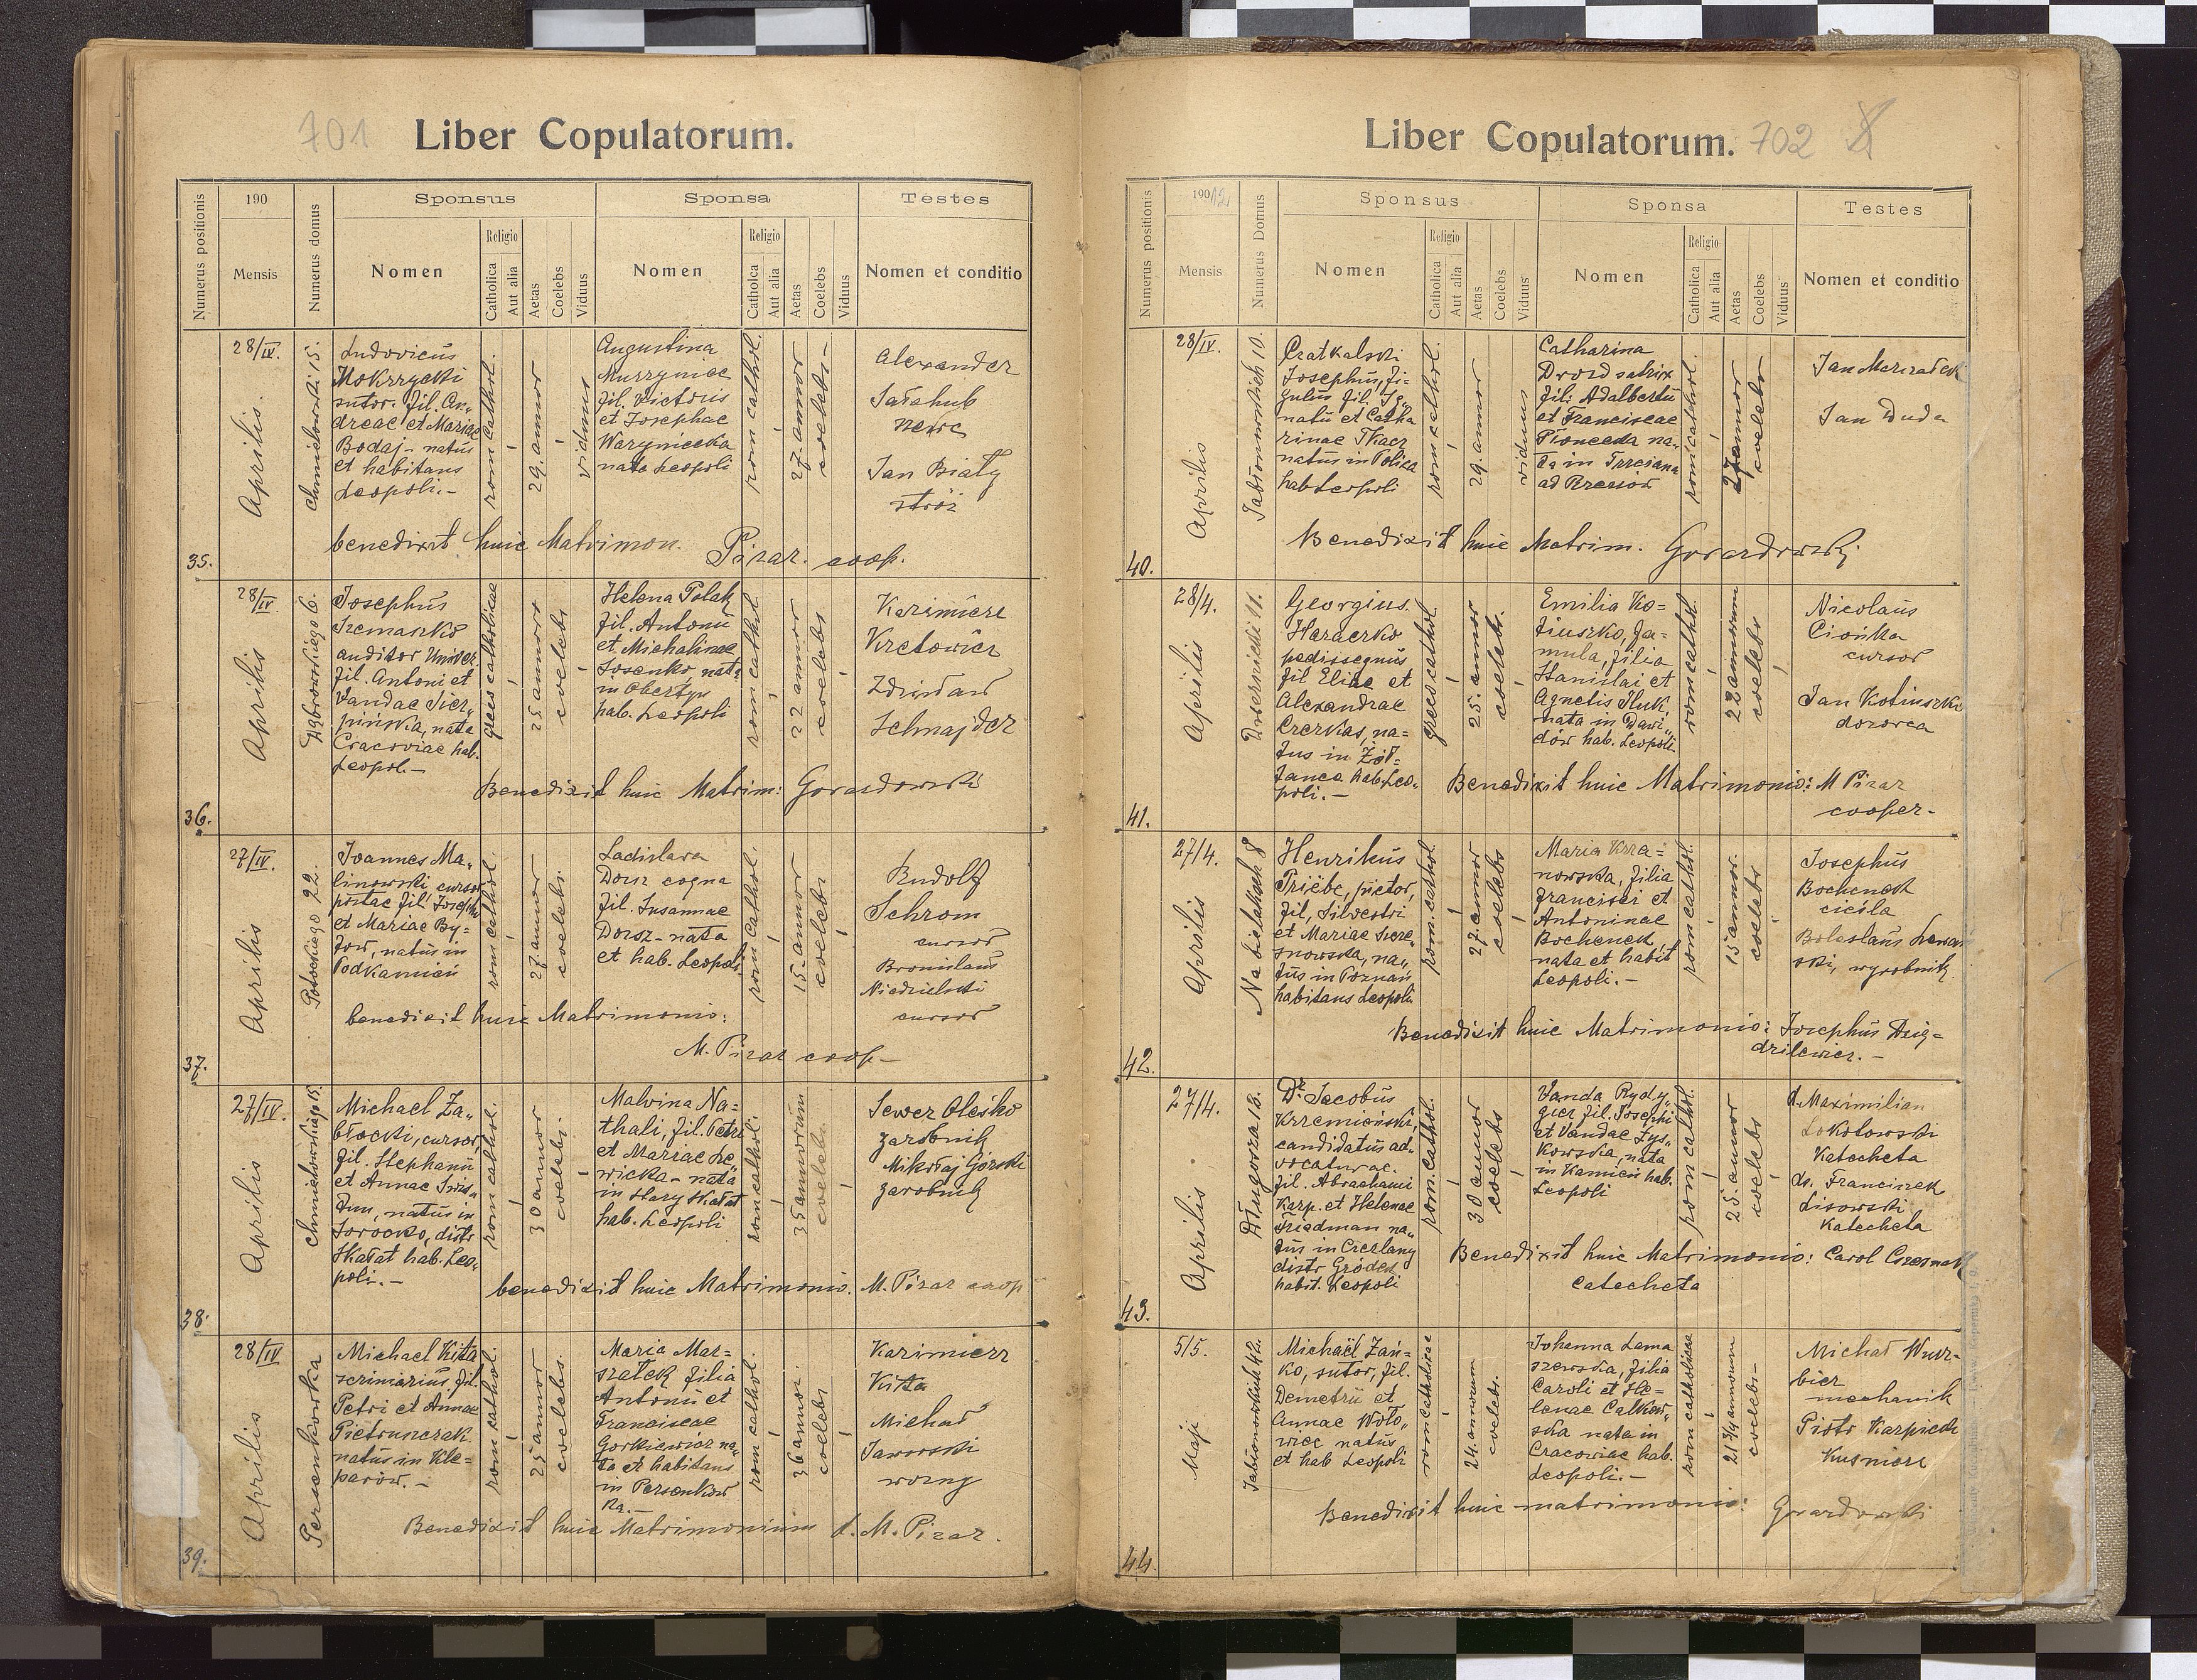 701
Liber Copulatorum.
Numerus positionis
190
Mensis
Numerus domus
Sponsus
Nomen
Religio
Catholica
Aut alia
Aetas
Coelebs
Viduus
Sponsa
Nomen
Religio
Catholica
Aut alia
Aetas
Coelebs
Viduus
Testes
Nomen et conditio
35.
28/IV.
Aprilis.
Chmielowski 15.
Ludovicus
Mokrzycki
sutor. fil. An„
dreae et Mariae
Bodaj - natus
et habitans
Leopoli.-
rom cathol.
29. annor
viduus
Augustina
Murzyniec
fil. Victoris
et Josephae
Waryniecka
nata Leopoli
rom cathol.
27. annor
coelebs-
Alexander
Jan Biały
stróż
benedixit huic Matrimon. Pizar. coop.
36.
28/IV.
Aprilis
Dąbrowskiego 6.
Josephus
Szemaszko
auditor Univer.
fil. Antoni et
Vandae Sier„
pińska, nata
Cracoviae hab.
Leopol.-
catholicae
25 annor
coelebs
Helena Polak
fil. Antonii
et Michalinae
nat:
in Obertyn
hab. Leopoli
rom cathol
22 annor
coelebs
Kazimierz
Kretowicz
Zdzisław
Schnajder
Benedixit huic Matrim: Gorazdowski
37.
27/IV.
Aprilis
Potockiego 22.
Joannes Ma„
linowski cursor
postae fil. Josephi
et Mariae By=
natus in
Podkamień
rom cathol.
27 annor
coelebs.
Ladislava
Dorsz cogna
fil. Susannae
Dorsz - nata
et hab. Leopoli
rom cathol.
15. annor
coelebs
Rudolf
Schrom
cursor
Bronislaus
Niedzielski
cursor
benedixit huic Matrimonio:
M. Pizar coop-
38.
27/IV.
Aprilis
Chmielowskiego 15.
Michael Za„
błocki, cursor
fil. Stephanii
et Annae
natus in
Sorocko, distr
Skałat hab. Leo„
poli.-
rom cathol.
30 annor
coelebs.
Malvina Na=
thali, fil. Petri
et Mariae Le„
wicka - nata
in Stary Skałat
hab. Leopoli
rom cathol.
35 annorum
coelebs
Sewer Oleśko
zarobnik
Mikołaj Górski
zarobnik
benedixit huic Matrimonio. M. Pizar coop
39.
28/IV
Aprilis
Persenkowka
Michael Kita
scriniarius, fil.
Petri et Annae
Pietruszczak
natus in Kle=
parów.-
rom cathol.
25 annor
coelebs.
Maria Mar=
szałek filia
Antonii et
Franciscae
Gorkiewicz na„
ta et habitans
in Persenkow
ka.-
rom cathol.
36 annor.
coelebs
Kazimierz
Kita
Michał
Jaworski
woźny
Benedixit huic Matrimonium X. M. Pizar.
702
Liber Copulatorum.
Numerus positionis
19012
Mensis
Numerus Domus
Sponsus
Nomen
Religio
Catholica
Aut alia
Aetas
Coelebs
Viduus
Sponsa
Nomen
Religio
Catholica
Aut alia
Aetas
Coelebs
Viduus
Testes
Nomen et conditio
40.
28/IV.
Aprilis
Jabłonowskich 10.
Josephus, fi=
gulus fil. Ig„
natii et Catha
rinae Tkacz
natus in Polica
hab Leopoli
rom cathol.
29. annor
viduus
Catharina
fil: Adalbertii
et Franciscae
na„
ta in Trzciana
ad Rzeszow
rom cathol.
27 annor
coelebs
Jan Marszałek
Jan Duda
Benedixit huic Matrim. Gorazdowski
41.
28/4.
Aprilis
Dwernicki 11.
Georgius
Haraczko
pedissequus
fil Eliae et
Alexandrae
Czerkas, na=
tus in Żół=
tańca hab. Leo„
poli.-
greco cathol.
25. annor
coelebs.
Emilia Ko=
ciuszko, fa=
mula, filia
Stanislai et
Agnetis Iluk
nata in Dawi„
dów hab. Leopoli
rom cathol.
22 annorum
coelebs
Nicolaus
Ciońka
cursor
Jan
dozorca
Benedixit huic Matrimonio: M Pizar
cooper-
42.
27/4.
Aprilis
Na bielakach 8
Henrikus
Priebe, pictor,
fil. Silvestri
et Mariae
na„
tus in Poznań
habitans Leopoli
rom. cathol.
27. annor
coelebs
Maria Krza=
nowska, filia
Francisci et
Antoninae
Bochenek
nata et habit
Leopoli.-
rom cathol.
15 annor.
coelebs
Josephus
Bochenek
cieśla
Boleslaus
ski, wyrobnik.
Benedixit huic Matrimonio: Josephus Dzię=
dzilewicz.-
43.
27/4.
Aprilis
Długosza 18.
Dr Jacobus
Krzemieński,
candidatus ad„
vocaturae.
fil. Abrachami
Karp. et Helenae
Friedman na„
tus in Czerlany
distr Gródek
habit. Leopoli
rom. cathol.
30 annor
coelebs
Vanda Rydy„
gier fil. Josephi
et Vandae Zys„
kowska, nata
in Kamień hab.
Leopoli
rom cathol.
25 annor
coelebs
X. Maximilian
Sokołowski
Katecheta
ks. Franciszek
Lisowski
Katecheta
Benedixit huic Matrimonio: Carol Czesnak
catecheta
44.
5/5.
Maji
Jabłonowskich 42.
Michaël Zań=
ko, sutor, fil.
Demetrii et
Annae Woło„
wiec natus
et hab Leopoli
rom catholicae
24. annorum
coelebs.
Johanna Lama
szewska, filia
Caroli et He=
lenae Calkow„
ska nata in
Cracowiae hab.
Leopoli.-
rom catholicae
21 3/4 annorum
coelebs-
Michał Wurz-
bier
mechanik
Piotr Karpiech
Kusnierz
Benedixit huic matrimonio: Gorazdowski